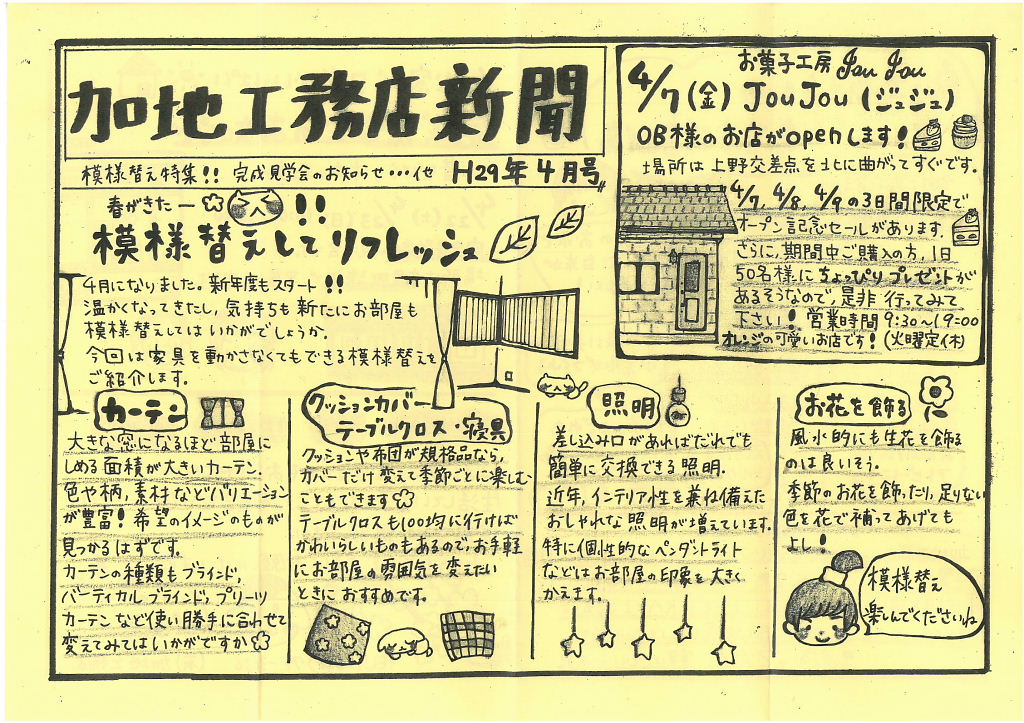 加地工務店新聞
模様替え特集!! 完成見学会のお知らせ…イセ H29年4月号
お菓子工房 Jou Jou
4/7(金) JouJou (ジュジュ)
OB様のお店がopenします!
場所は上野交差点を北に曲がってすぐです。
4/7, 4/8, 4/9の3日間限定で
オープン記念セールがあります。
さらに、期間中ご購入の方、1日
50名様にちょっぴりプレゼントが
あるそうなので、是非行ってみて
下さい! 営業時間 9:30~19:00
オレンジの可愛いお店です! (火曜定休)
春がきたー!!
模様替えしてリフレッシュ
4月になりました。新年度もスタート!!
温かくなってきたし、気持ちも新たにお部屋も
模様替えしてはいかがでしょうか。
今回は家具を動かさなくてもできる模様替えを
ご紹介します。
カーテン
大きな窓になるほど部屋に
しめる面積が大きいカーテン.
色や柄,素材などバリエーション
が豊富!希望のイメージのものが
見つかるはずです.
カーテンの種類もブラインド,
バーティカルブラインド,プリーツ
カーテンなど使い勝手に合わせて
変えてみてはいかがですか
クッションカバー
テーブルクロス・寝具
クッションや布団が規格品なら,
カバーだけ変えて季節ごとに楽しむ
こともできます
テーブルクロスも100均に行けば
かわいらしいものもあるので,お手軽
にお部屋の雰囲気を変えたい
ときにおすすめです。
照明
差し込み口があればだれでも
簡単に交換できる照明.
近年,インテリア性を兼ね備えた
おしゃれな照明が増えています.
特に個性的なペンダントライト
などはお部屋の印象を大きく
かえます.
お花を飾る
風水的にも生花を飾る
のは良いそう。
季節のお花を飾ったり,足りない
色を花で補ってあげても
よし!
模様替え
楽しんでくださいね